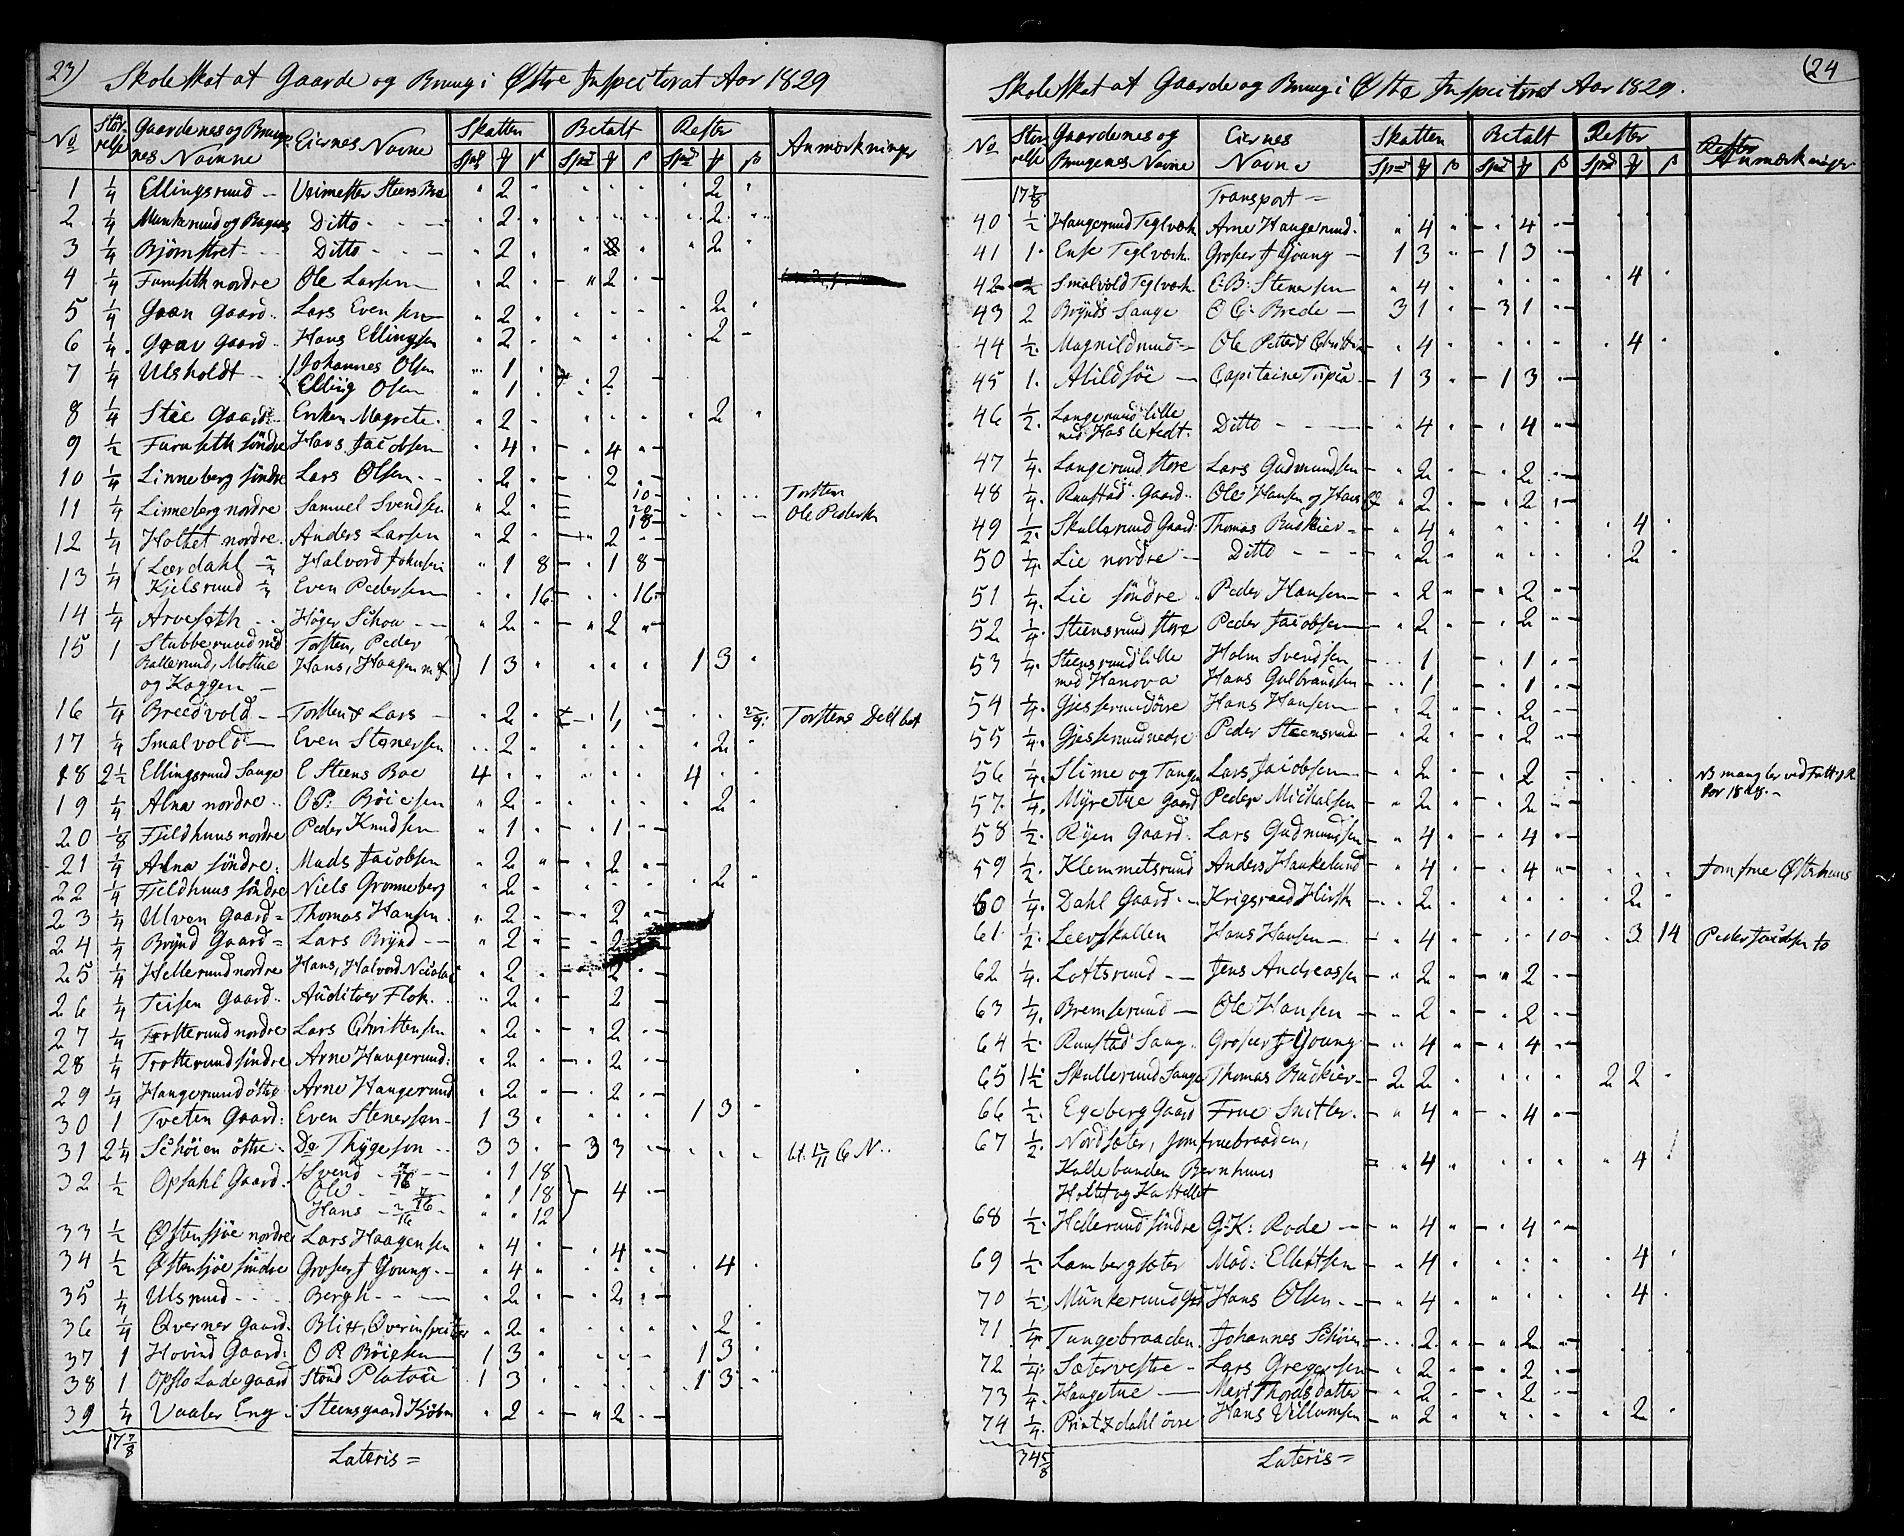 23)
Skoleskat af Gaarde og Brug i Østre Inspectorat Aar 1829
No | Stør-relse | Gaardenes og Brugenes Navne | Eiernes Navne | Skatten Spd ₰ β | Betalt Spd ₰ β | Rester Spd ₰ β | Anmærkninger
1 | 1/4 | Ellingsrud | Steens Boe | " 2 " | " " " | " 2 "
2 | 1/4 | Munkerud og | Ditto | " 2 " | " " " | " 2 "
3 | 1/4 | Ditto | " 2 " | " " | " 2 "
4 | 1/4 | Furuseth nordre | Ole Larsen | " 2 " | " 2 –
5 | 1/4 | Gran Gaard | Lars Evensen | " 2 " | " " " | " 2 "
6 | 1/4 | Grav Gaard | Hans Ellingsen | " 2 " | " " " | " 2 –
7 | 1/4 | Ulsholdt | Johannes Olsen | " 1 "
Elling Olsen | " 1 " | – 2 –
8 | 1/4 | Stee Gaard | Enken Magrete | " 2 " | " " " | " 2 "
9 | 1/2 | Furuseth søndre | Hans Jacobsen | " 4 " | – " 4 –
10 | 1/4 | Linneberg søndre | Lars Olsen | " 2 " | – " 2 –
11 | 1/4 | Linneberg nordre | Samuel Svendsen | " 2 " | 10 | Torsten
18 | Ole Pedersen
12 | 1/4 | Holtet nordre | Anders Larsen | " 2 " | – 2 –
13 | 1/4 | Leerdahl | Halvord Johnsen | " 1 8 | – " 1 8
Kjelsrud | Even Pedersen | " " 16 | – " " 16
14 | 1/4 | Arveseth | Höyer Schou | " 2 " | – " 2 "
15 | 1 | Stubberud med | Torsten, Peder
Ballerud, Mostue | Hans, Haagen m f | 1 3 " | " " " | 1 3 "
og Kaggen
16 | 1/4 | Breedvold | Torsten & Lars | " 2 " | – " 1 – | Torstens Deel bet
17 | 1/4 | Smalvold | Even Stenersen | " 2 " | " " " | " 2 "
18 | 2 1/2 | Ellingsrud Sauge | E Steens Boe | 4 " " | " " " | 4 " "
19 | 1/4 | Alna nordre | O P: Böiesen | " 2 " | " " " | " 2 "
20 | 1/8 | Fjeldhuus nordre | Peder Knudsen | " 1 " | – " 1 –
21 | 1/4 | Alna søndre | Mads Jacobsen | " 2 " | – " 2 "
22 | 1/4 | Fjeldhuus søndre | Niels Grønneberg | " 2 " | " " " | " 2 "
23 | 1/4 | Ulven Gaard | Thomas Hansen | " 2 " | – " 2 –
24 | 1/4 | Brynd Gaard | Lars Brynd | " 2 " | – 2
25 | 1/4 | Hellerud nordre | Hans, Halvord Nicolai | " 2 " | – 2 –
26 | 1/4 | Teisen Gaard | Auditør Flok | " 2 " | – 2 –
27 | 1/4 | Trotterud nordre | Lars Christensen | " 2 " | – " 2 –
28 | 1/4 | Trotterud søndre | Arne Haugerud | " 2 " | – " 2 –
29 | 1/4 | Haugerud østre | Arne Haugerud | " 2 " | – " 2 –
30 | 1 | Tveten Gaard | Even Stenersen | 1 3 " | " " " | 1 3 "
31 | 2 1/4 | Schøien østre | Do Thygeson | 3 3 " | – 3 3 – | " " "
32 | 1/2 | Opsahl Gaard | Svend 7/16 | " 1 18
Ole 7/16 | " 1 18 | – " 4 –
Hans 2/16 | " " 12
33 | 1/2 | Østensjøe nordre | Lars Haagensen | " 4 " | – " 4 –
34 | 1/2 | Østensjøe søndre | Groserer J Young | " 4 " | " " " | " 4 "
35 | 1/4 | Ulsrud | Bergh | " 2 " | – " 2 –
36 | 1/4 | Qverner Gaard | Blitt, Overinspecteur | " 2 " | " " " | " 2 "
37 | 1 | Hovind Gaard | O P. Böiesen | 1 3 " | " " – | 1 3 "
38 | 1 | Opslo Ladegaard | Platou | 1 3 " | " " " | 1 3 "
39 | 1/4 | Vaaler Eng | Steensgaard Kjøbm | " 2 " | – " 2 –
17 7/8
Lateris =
(24
Skoleskat af Gaarde og Brug i Østre Inspectorat Aar 1829.
No | Stør-relse | Gaardenes og Brugenes Navne | Eiernes Navne | Skatten Spd ₰ β | Betalt Spd ₰ β | Rester Spd ₰ β | Anmærkninger
17 7/8 | Transport =
40 | 1/2 | Haugerud Teglværk | Arne Haugerud | " 4 " | – " 4 –
41 | 1 | Ense Teglværk | Groserer J Young | 1 3 " | – 1 3 –
42 | 1/2 | Smalvold Teglværk | E: B: Stenersen | " 4 " | " " " | " 4 "
43 | 2 | Brynds Sauge | O C: Brede | 3 1 " | – 3 1 –
44 | 1/2 | Magnildrud | Ole Petter Christian | " 4 " | " " " | " 4 "
45 | 1 | Abildsøe | Capitaine | 1 3 " | – 1 3 –
46 | 1/2 | Langerud lille
med Haslefedt | Ditto | " 4 " | – " 4 –
47 | 1/4 | Langerud store | Lars Gudmundsen | " 2 " | " 2 –
48 | 1/4 | Rustad Gaard | Ole Hansen og Hans | " 2 " | " 2 –
49 | 1/2 | Skullerud Gaard | Thomas Buckier | " 4 " | " " " | " 4 "
50 | 1/4 | Lie nordre | Ditto | " 2 " | " " " | " 2 "
51 | 1/4 | Lie søndre | Peder Hansen | " 2 " | – " 2 –
52 | 1/4 | Steensrud store | Peder Jacobsen | " 2 " | – " 2 –
53 | 1/4 | Steensrud lille | Holm Svendsen | " 1 " | " 1 –
med Hanova | Hans Gulbrandsen | " 1 " | – " 1 –
54 | 1/4 | Gjesserud øvre | Hans Hansen | " 2 " | – " 2 –
55 | 1/4 | Gjesserud nedre | Peder Steensrud | " 2 " | – " 2 –
56 | 1/4 | Slime og Tangen | Lars Jacobsen | " 2 " | – " 2 – | NB mangler ved
for 1828.
57 | 1/4 | Myretue Gaard | Peder Michalsen | " 2 " | – " 2 –
58 | 1/2 | Ryen Gaard | Lars Gudmundsen | " 4 " | – " 4 –
59 | 1/2 | Klemmetsrud | Anders Haukelund | " 4 " | – " 4 " | Jomfrue Østerhuus
60 | 1/4 | Dahl Gaard | Krigsraad | " 2 " | " " " | " 2 "
61 | 1/2 | Leerskallen | Hans Hansen | " 4 " | " " 10 | " 3 14 | Peder
62 | 1/4 | Loftsrud | Jens Andreassen | " 2 " | – " 2 –
63 | 1/4 | Bremserud | Ole Hansen | " 2 " | – " 2 –
64 | 1/2 | Rustad Saug | Groserer J Young | " 4 " | – " 4 –
65 | 1 1/2 | Skullerud Sauge | Thomas Buckier | 2 2 " | " " " | 2 2 "
66 | 1/2 | Egeberg Gaard | Frue Snitler | " 4 " | – " 4 –
67 | 1/2 | Nordsæter, Jomfruebraaden,
Kollebunden Bernhuus | " 4 " | " " " | " 4 "
Holtet og Kastellet
68 | 1/2 | Hellerud søndre | G: K: Rode | " 4 " | – " 4 –
69 | 1/2 | Lambergsæter | Mad: Ellertsen | " 4 " | " " " | " 4 "
70 | 1/2 | Munkerud | Hans Olsen | " 4 " | " " " | " 4 "
71 | 1/4 | Tangebraaden | Johannes Schøien | " 2 " | – " 2 –
72 | 1/4 | Sæter vestre | Lars Gregersen | " 2 " | – " 2 –
73 | 1/4 | Haugetue | Mari Thordsdatter | " 2 " | – " 2 –
74 | 1/4 | Printzdahl øvre | Hans Villumsen | " 2 " | " " " | " 2 "
34 5/8
Lateris =